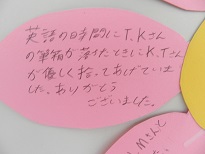 英語の時間にT.Kさん
の筆箱が落ちたときにK.Tさん
が優しく拾ってあげていま
した。ありがとう
ございました。
M さんと